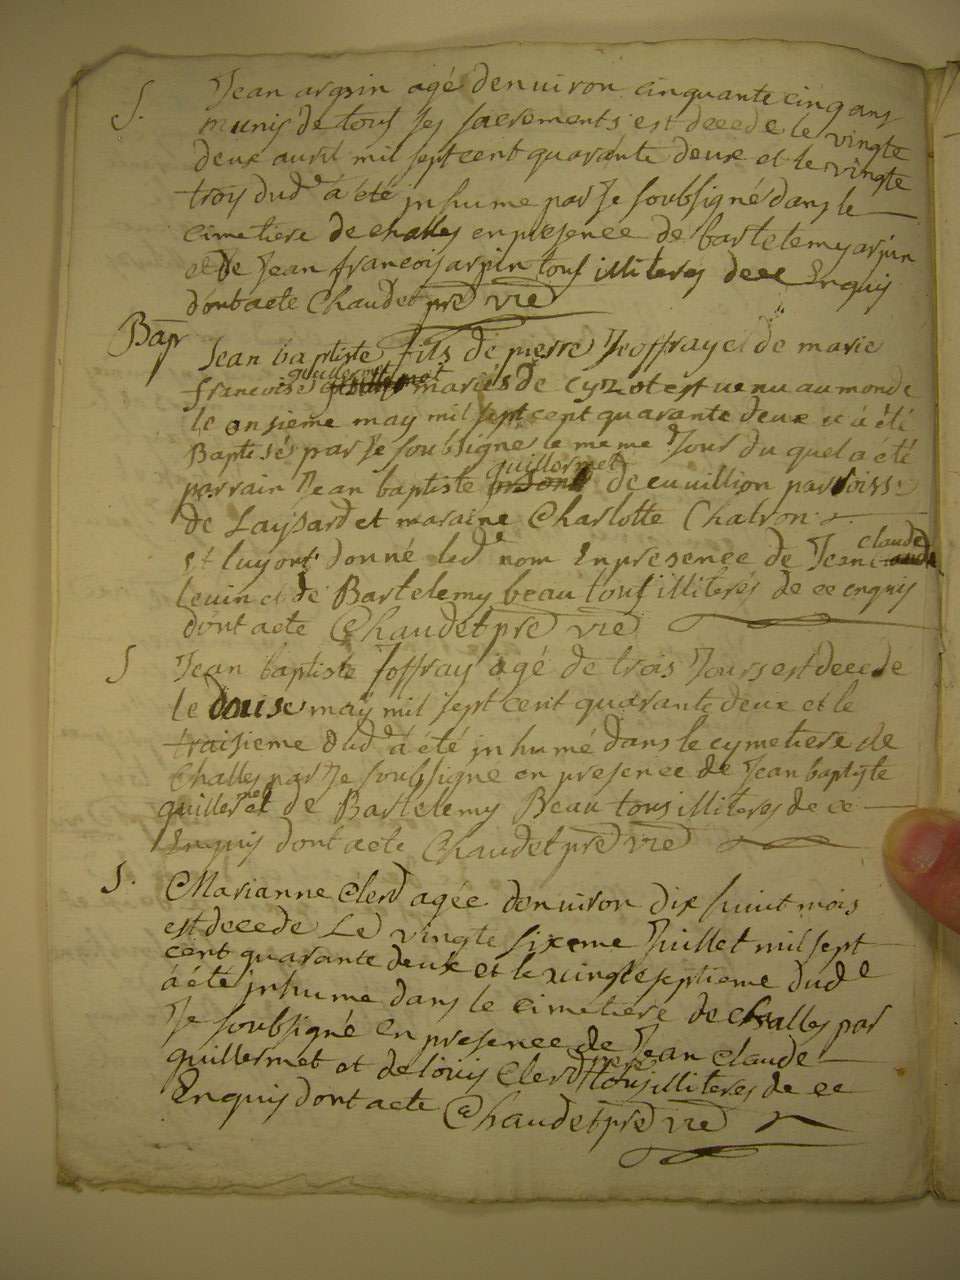 S. Jean arpin agé denuiron cinquante cinq ans
munis de tous ses sacrements est decede le vingte
deux auril mil sept cent quarante deux et le vingte
trois dud^e a été inhume par Je soubsigné dans le
cimetiere de challes en presence de bartelemy arpin
et de Jean francois arpin tous illiteres de ce Enquis
dont acte Chaudet prē vic
Bap Jean baptiste fils de pierre Jeoffray et de marie
guillermet
francoise mariés de cyzot est uenu au monde
le onsieme may mil sept cent quarante deux et à été
Baptisés par Je soubsigne le meme Jour du quel a été
guillermet
parrain Jean baptiste de cuuillion parroisse
de Laysard et maraine Charlotte Chatron
claude
et luy ont donné led^e nom En presence de Jean
leuin et de Bartelemy beau tous illiterés de ce enquis
dont acte Chaudet prē vic
S Jean baptiste Joffray agé de trois Jours est decede
le douise may mil sept cent quarante deux et le
traisieme dud^e a été inhumé dans le cymetiere de
Challes par Je soubsigne en presence de Jean baptiste
guillermet de Bartelemy Beau tous illiteres de ce
Enquis dont acte Chaudet prē vic
S. Marianne Clerd agée denuiron dix huiut mois
est decede Le vingte sixeme Juillet mil sept
cent quarante deux et le uingte septieme dud^e
à été inhume dans le cimetiere de challes par
Je soubsigné en presence de Jean claude
guillermet et de louis Clerd tous illiteres de ce
Enquis dont acte Chaudet prē vic